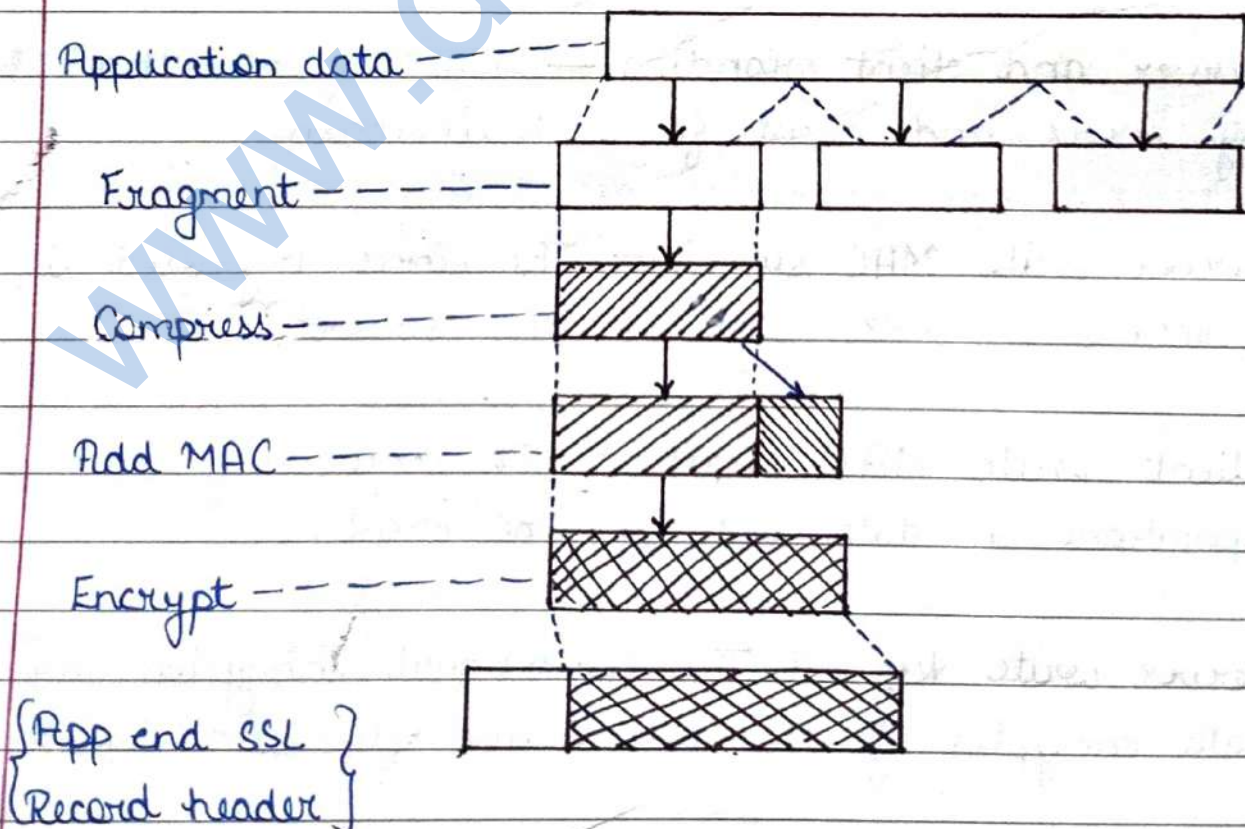 www.
Application data
Fragment
Compress
Add MAC
Encrypt
{App end SSL}
{Record header}